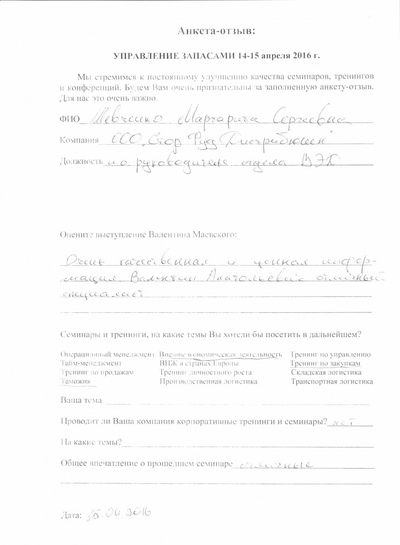 Анкета-отзыв:
УПРАВЛЕНИЕ ЗАПАСАМИ 14-15 апреля 2016 г.
Мы стремимся к постоянному улучшению качества семинаров, тренингов
и конференций. Будем Вам очень признательны за заполненную анкету-отзыв.
Для нас это очень важно.
ФИО Шевченко Маргарита Сергеевна
Компания ООО "Стор Фуд Дистрибюшен"
Должность и.о. руководителя отдела ВЭД
Оцените выступление Валентина Маевского:
Очень качественная и ценная инфор-
мация Валентин Анатольевич отличный
специалист
Семинары и тренинги, на какие темы Вы хотели бы посетить в дальнейшем?
Операционный менеджмент Внешнеэкономическая деятельность Тренинг по управлению
Тайм-менеджмент ВНЖ в странах Европы Тренинг по закупкам
Тренинг по продажам Тренинг личностного роста Складская логистика
Таможня Производственная логистика Транспортная логистика
Ваша тема
Проводит ли Ваша компания корпоративные тренинги и семинары? нет
На какие темы?
Общее впечатление о прошедшем семинаре отличные
Дата: 15.04.2016